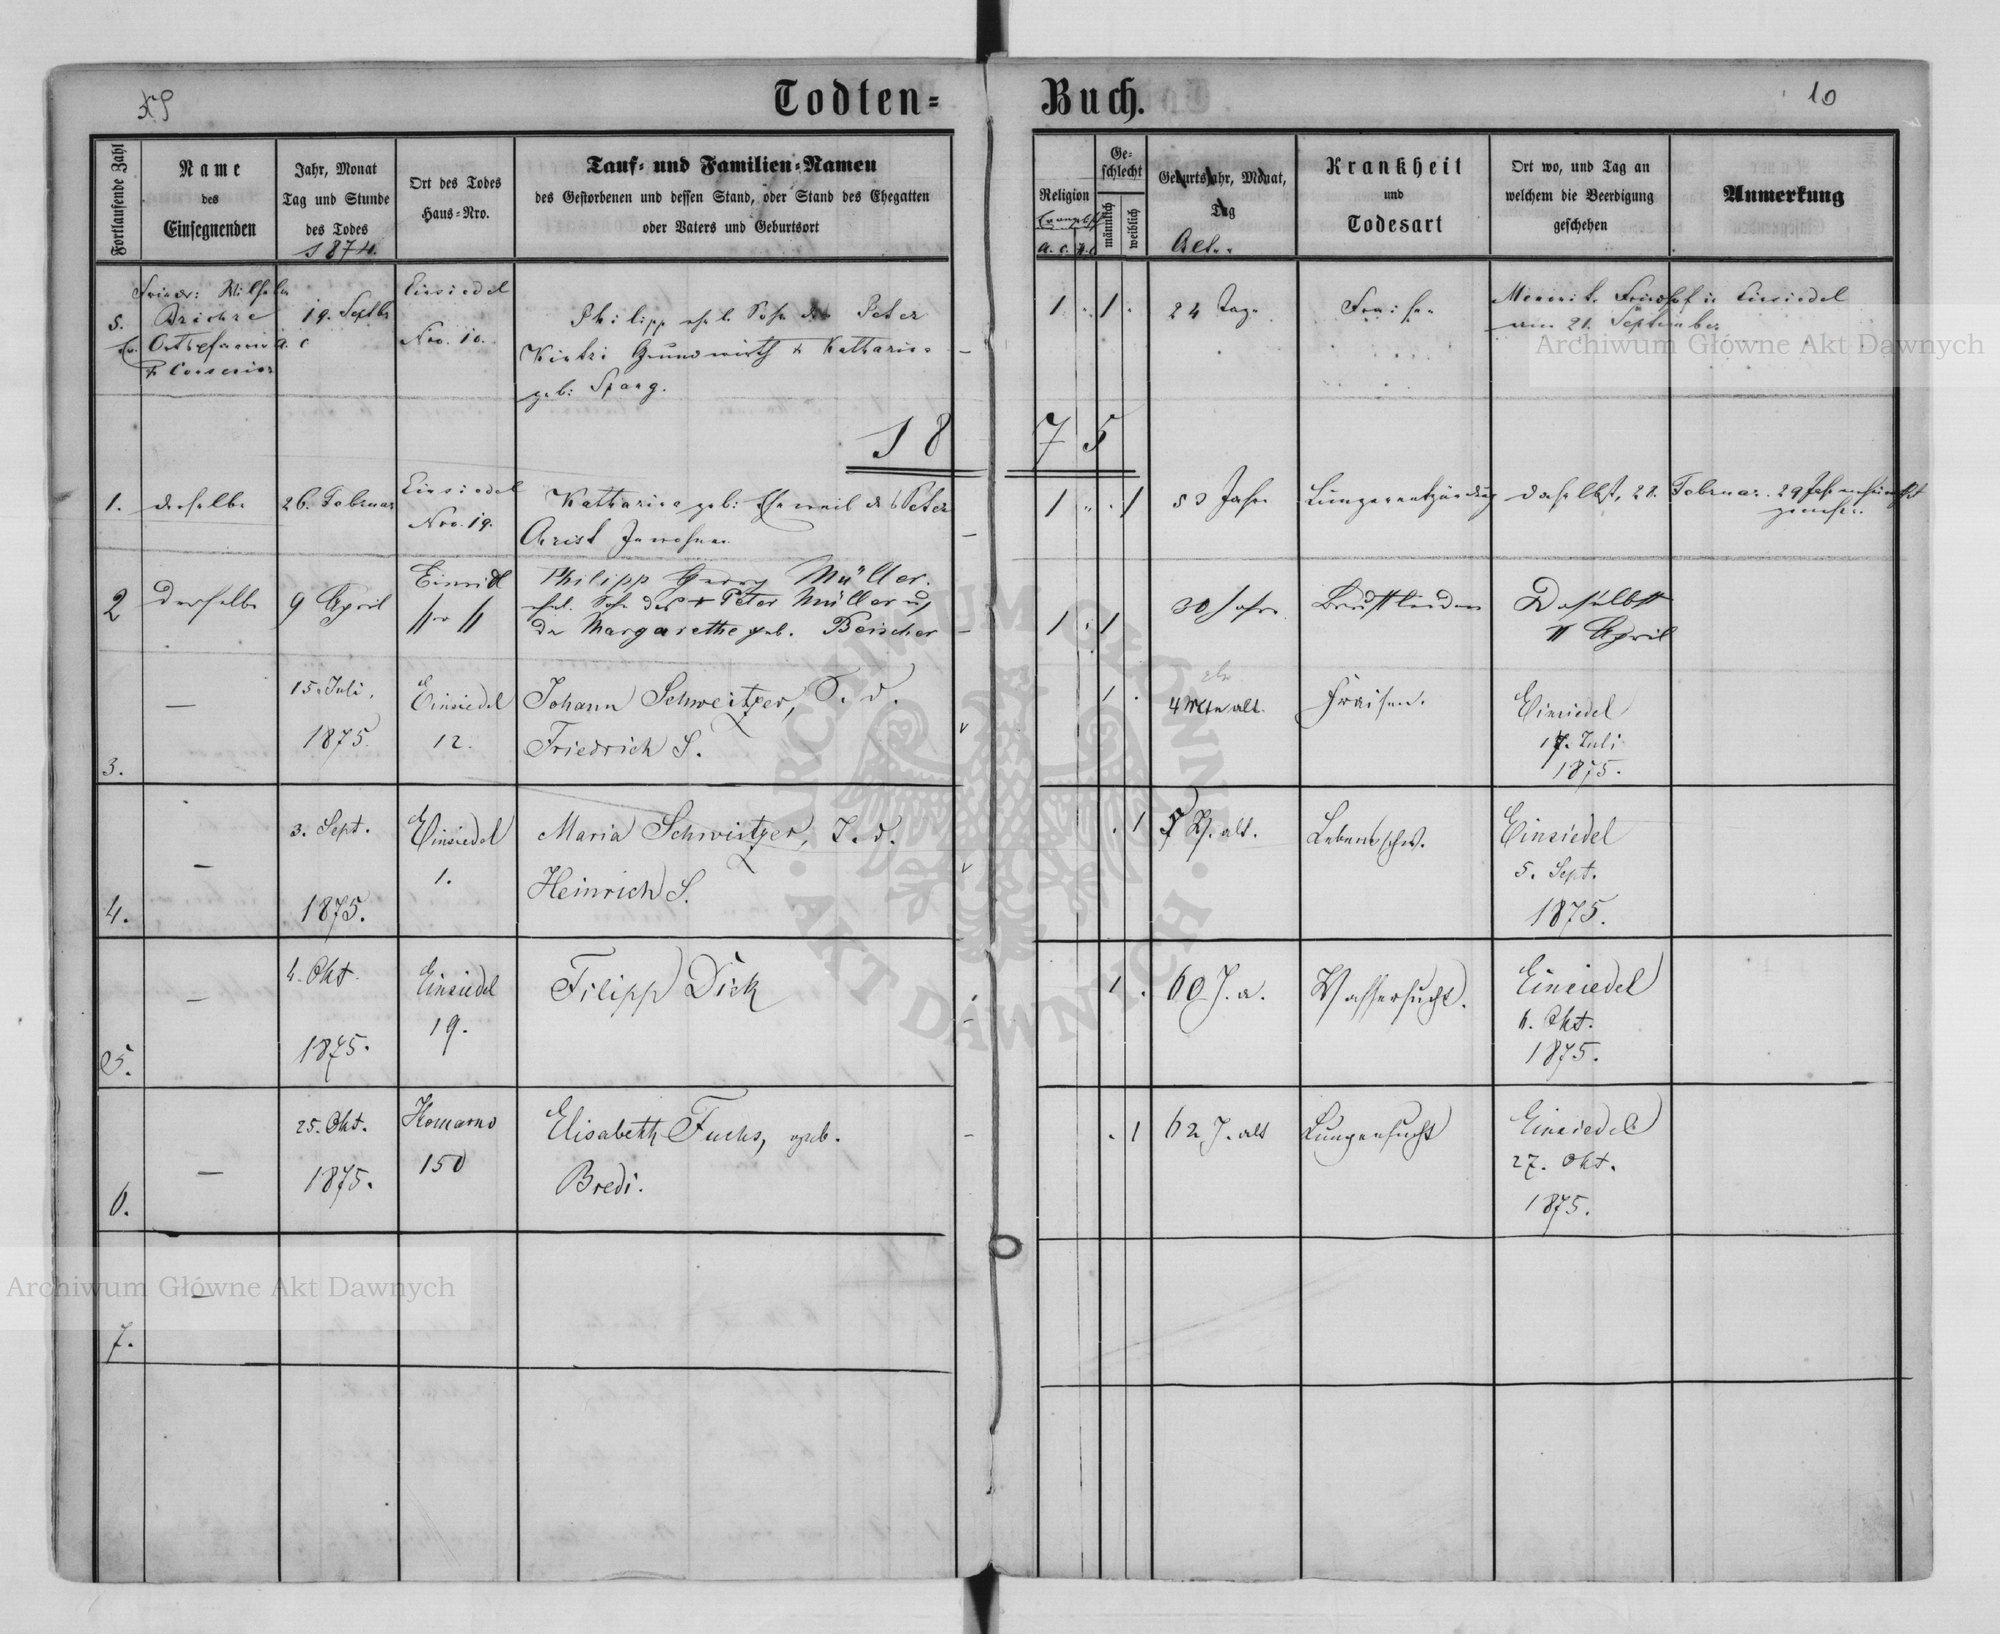 Todten= Buch.
10
Fortlaufende Zahl
Name
des
Einsegnenden
Jahr, Monat
Tag und Stunde
des Todes
1874.
Ort des Todes
Haus=Nro.
Tauf= und Familien=Namen
des Gestorbenen und dessen Stand, oder Stand des Ehegatten
oder Vaters und Geburtsort
Religion
A. C.
Ge=
schlecht
männlich
weiblich
Geburtsjahr, Monat,
Tag
Krankheit
und
Todesart
Ort wo, und Tag an
welchem die Beerdigung
geschehen
Anmerkung
5.
19. Septbr
Einsiedel
Nro. 10.
Philipp ehel. Sohn des Peter
Grundwirth & Katharina
geb:
1 1
24 Tage
Fraisen
Friedhof in Einsiedel
am 21. September
1875
1. derselbe
26. Februar
Einsiedel
Nro. 19.
Katharina geb: Eheweib des Peter
Christ
1 1
53 Jahre
Lungenentzündung
daselbst, 28. Februar.
2
Derselbe
9 April
Philipp Georg Müller.
ehel. Sohn des + Peter Müller u
der Margarethe geb.
1 1
30 Jahre
Brustleiden
Daselbst
11 April
3.
—
15. Juli,
1875.
Einsiedel
12.
Johann Schweitzer, S. d.
Friedrich S.
1
4 Mte alt.
Fraisen.
Einsiedel
17. Juli
1875.
4.
—
3. Sept.
1875.
Einsiedel
1.
Maria Schweitzer, T. d.
Heinrich S.
1
alt.
Lebensschw.
Einsiedel
5. Sept.
1875.
5.
—
4. Okt.
1875.
Einsiedel
19.
Filipp Dick
1
60 J. a.
Wassersucht.
Einsiedel
6. Okt.
1875.
6.
—
25. Okt.
1875.
Komarno
150
Elisabeth Fuchs, geb.
Bredi.
1
62 J. alt
Lungensucht
Einsiedel
27. Okt.
1875.
7.
—
Archiwum Główne Akt Dawnych
Archiwum Główne Akt Dawnych
ARCHIWUM GŁÓWNE
AKT DAWNYCH